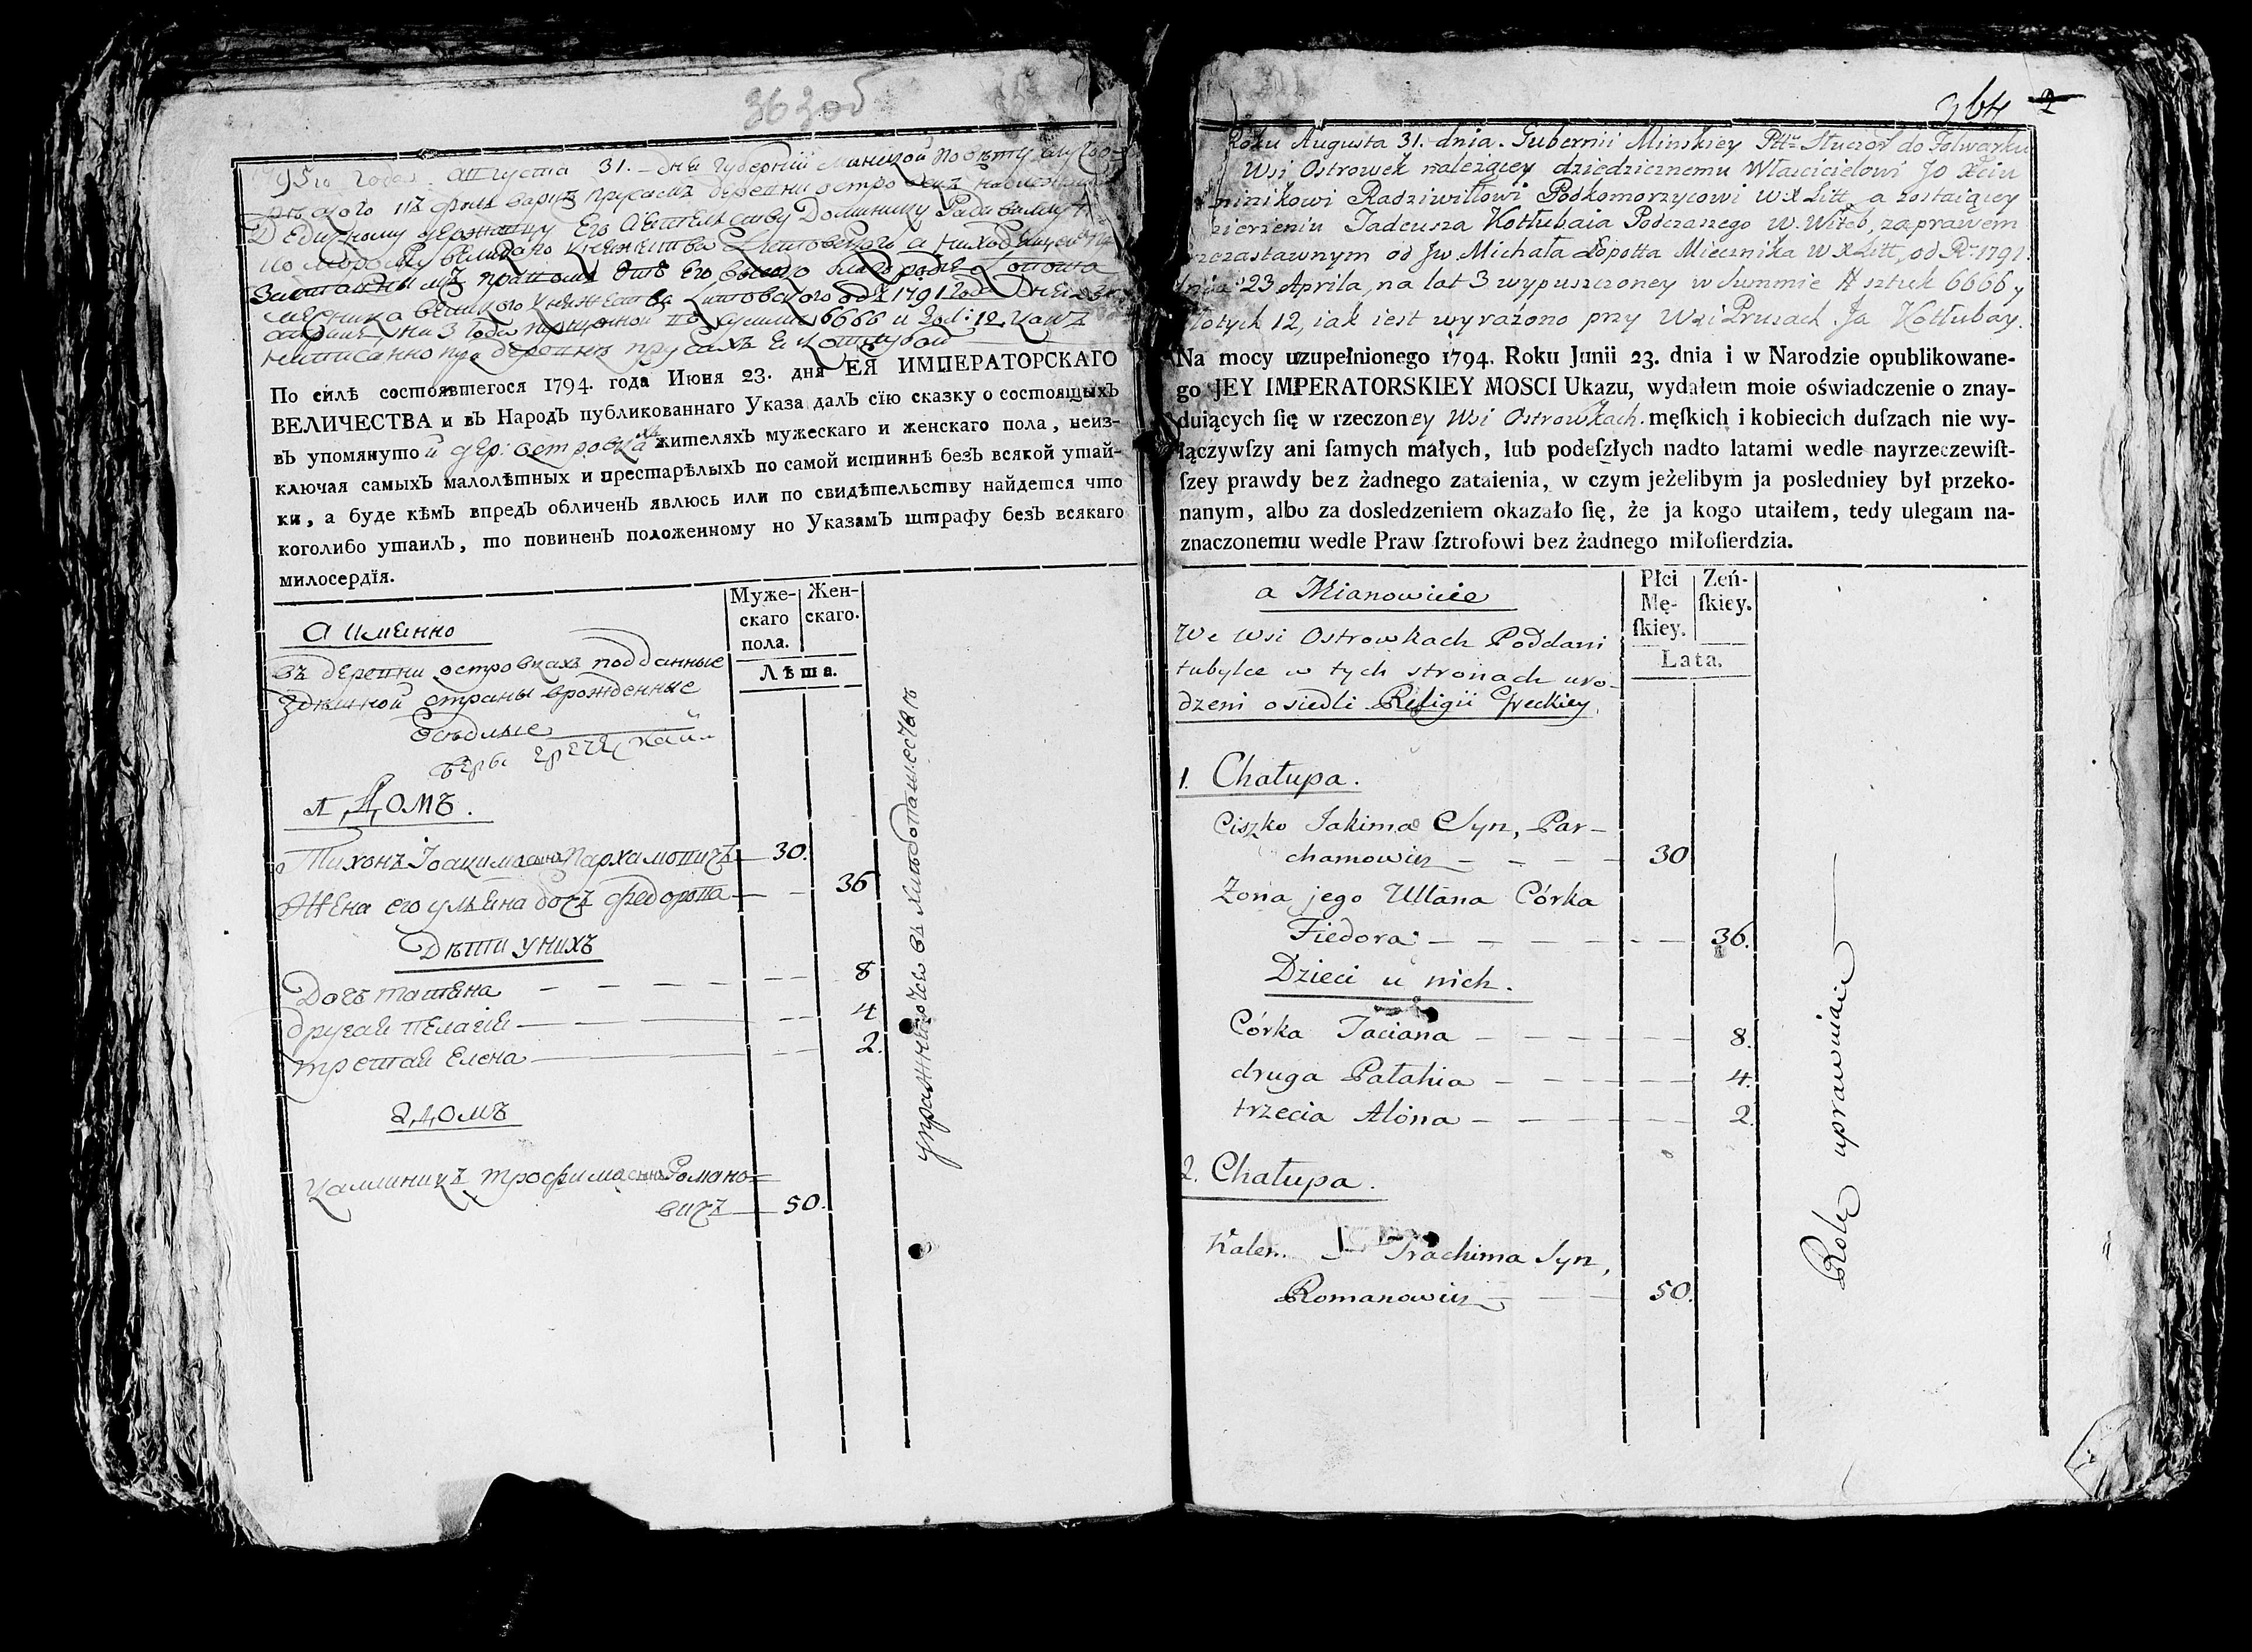 363об
1795го года августа 31. дня Губернии Минской
Дедичному Его Доминику
великаго Княжества Литовского а
Его высоко благородия
великого Княжества Литовского одъ 1791 года дня 23
на 3 года 6666 и зол: 12
написанно при деревне прусахъ Я Котлубай
По силѣ состоявшегося 1794. года Июня 23. дня ЕЯ ИМПЕРАТОРСКАГО
ВЕЛИЧЕСТВА и въ Народъ публикованнаго Указа далъ сїю сказку о состоящыхъ
въ упомянутой дер: островкахъ жителяхъ мужескаго и женскаго пола, неиз-
ключая самыхъ малолѣтных и престарѣлыхъ по самой истиннѣ безъ всякой утай-
ки, а буде кѣмъ впредъ обличенъ явлюсь или по свидѣтельству найдется что
коголибо утаилъ, то повиненъ положенному по Указамъ штрафу безъ всякаго
милосердїя.
Муже-
скаго
пола.
Жен-
скаго.
Лѣта.
а именно
въ деревни островкахъ подданные
здешной страны врожденные
осѣдлые
веры греческой
1 Домъ.
Тихонъ Іоакима сынъ Пархамовичъ — 30.
Жена его ульяна дочъ федорова — — 36
Дѣти у нихъ
Дочъ татяна — — — — 8
другая пелагія — — 4
третая елена — — 2.
2 Домъ
калиникъ трофима сынъ Романо=
вичъ — 50.
упражняются въ хлебопашестве
364 2
Roku Augusta 31. dnia. Gubernii Minskiey Pttu Słuckoo do Folwarku
Wsi Ostrowek należącey dziedzicznemu Właścicielowi Jo Xciu
minikowi Radziwiłłowi Podkomorzycowi WXLitt, a zostaiącey
dzierżeniu Tadeusza Kotłubaia Podczaszego W. Witeb, za prawem
zastawnym od Jw. Michała Łopotta Miecznika WXLitt, od Ru 1791
dnia 23 Aprila, na lat 3 wypuszczoney w Summie # sztuk 6666 y
złotych 12, iak iest wyrażono przy Wsi Prusach. Ja Kotłubay.
Na mocy uzupełnionego 1794. Roku Junii 23. dnia i w Narodzie opublikowane-
go JEY IMPERATORSKIEY MOSCI Ukazu, wydałem moie oświadczenie o znay-
duiących ſię w rzeczoney Wsi Ostrowkach. męſkich i kobiecich duſzach nie wy-
łączywſzy ani ſamych małych, lub podeſzłych nadto latami wedle nayrzeczewiſt-
ſzey prawdy bez żadnego zataienia, w czym jeżelibym ja posledniey był przeko-
nanym, albo za dosledzeniem okazało ſię, że ja kogo utaiłem, tedy ulegam na-
znaczonemu wedle Praw ſztrofowi bez żadnego miłoſierdzia.
Płci
Mę-
ſkiey.
Zeń-
ſkiey.
Lata.
a Mianowicie
We Wsi Ostrowkach Poddani
tubylce w tych stronach uro-
dzeni osiedli Religii Greckiey.
1. Chałupa.
Ciszko Jakima Syn, Par-
chamowicz — — — — 30
Zona jego Ullana Córka
Fiedora — — — — — — 36.
Dzieci u nich.
Córka Taciana — — — — — 8.
druga Pałahia — — — — — 4.
trzecia Alóna — — — — — 2.
2. Chałupa.
Kalen. Trachima Syn,
Romanowicz — — — 50.
Rolę uprawuiaie